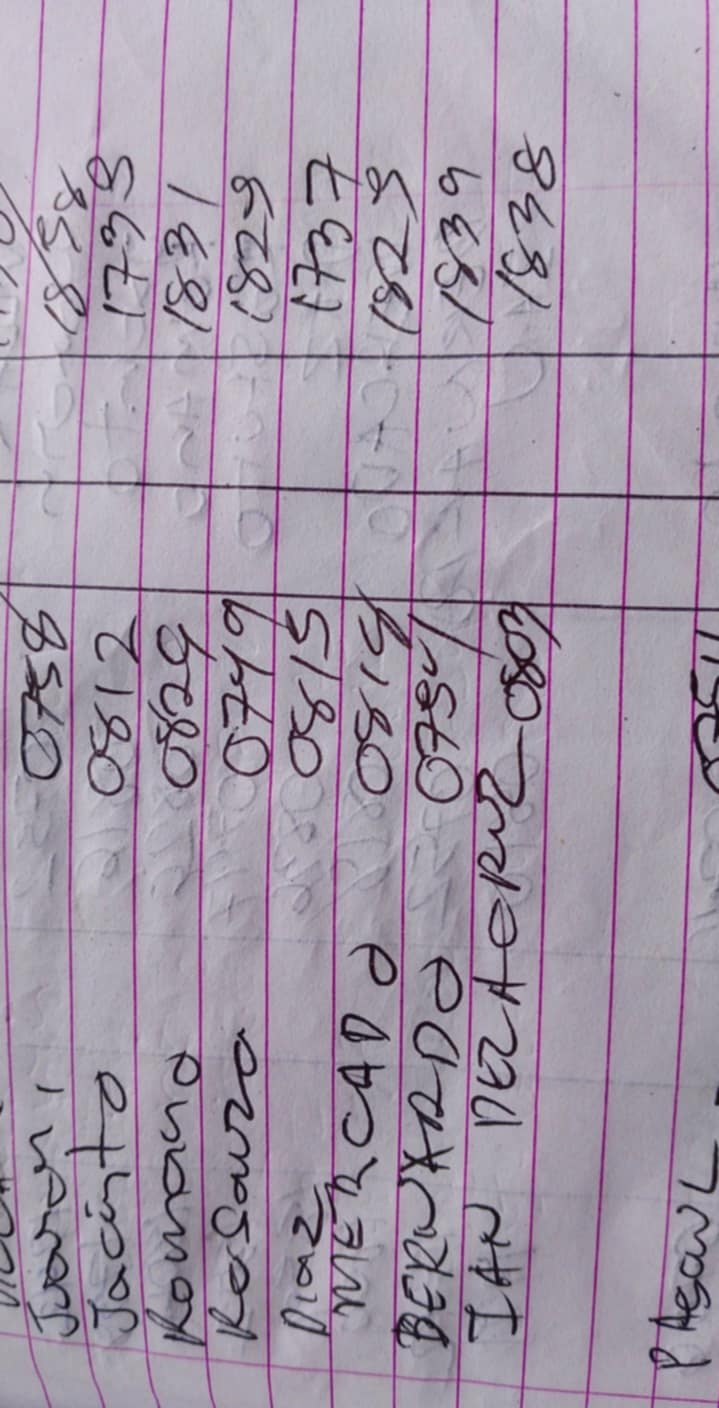 Juaroni 0758 1838
Jacinto 0812 1738
Romano 0829 1831
Rosauro 0749 1829
Diaz 0815 1737
MERCADO 0814 1829
BERNARDO 0754 1839
IAN DELACRUZ 0803 1838